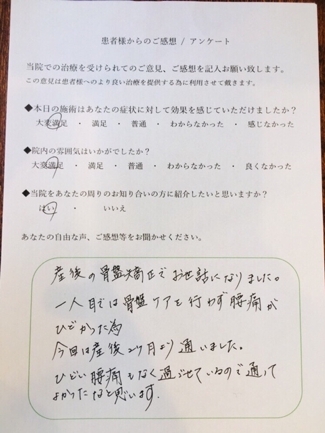 患者様からのご感想 / アンケート
当院での治療を受けられてのご意見、ご感想を記入お願い致します。
この意見は患者様へのより良い治療を提供する為に利用させて戴きます。
◆本日の施術はあなたの症状に対して効果を感じていただけましたか？
大変満足 ・ 満足 ・ 普通 ・ わからなかった ・ 感じなかった
◆院内の雰囲気はいかがでしたか？
大変満足 ・ 満足 ・ 普通 ・ わからなかった ・ 良くなかった
◆当院をあなたの周りのお知り合いの方に紹介したいと思いますか？
はい ・ いいえ
あなたの自由な声、ご感想等をお聞かせください。
産後の骨盤矯正でお世話になりました。
一人目では骨盤ケアを行わず腰痛が
ひどかった為
今回は産後2ヶ月より通いました。
ひどい腰痛もなく過ごせているので通って
よかったなと思います。